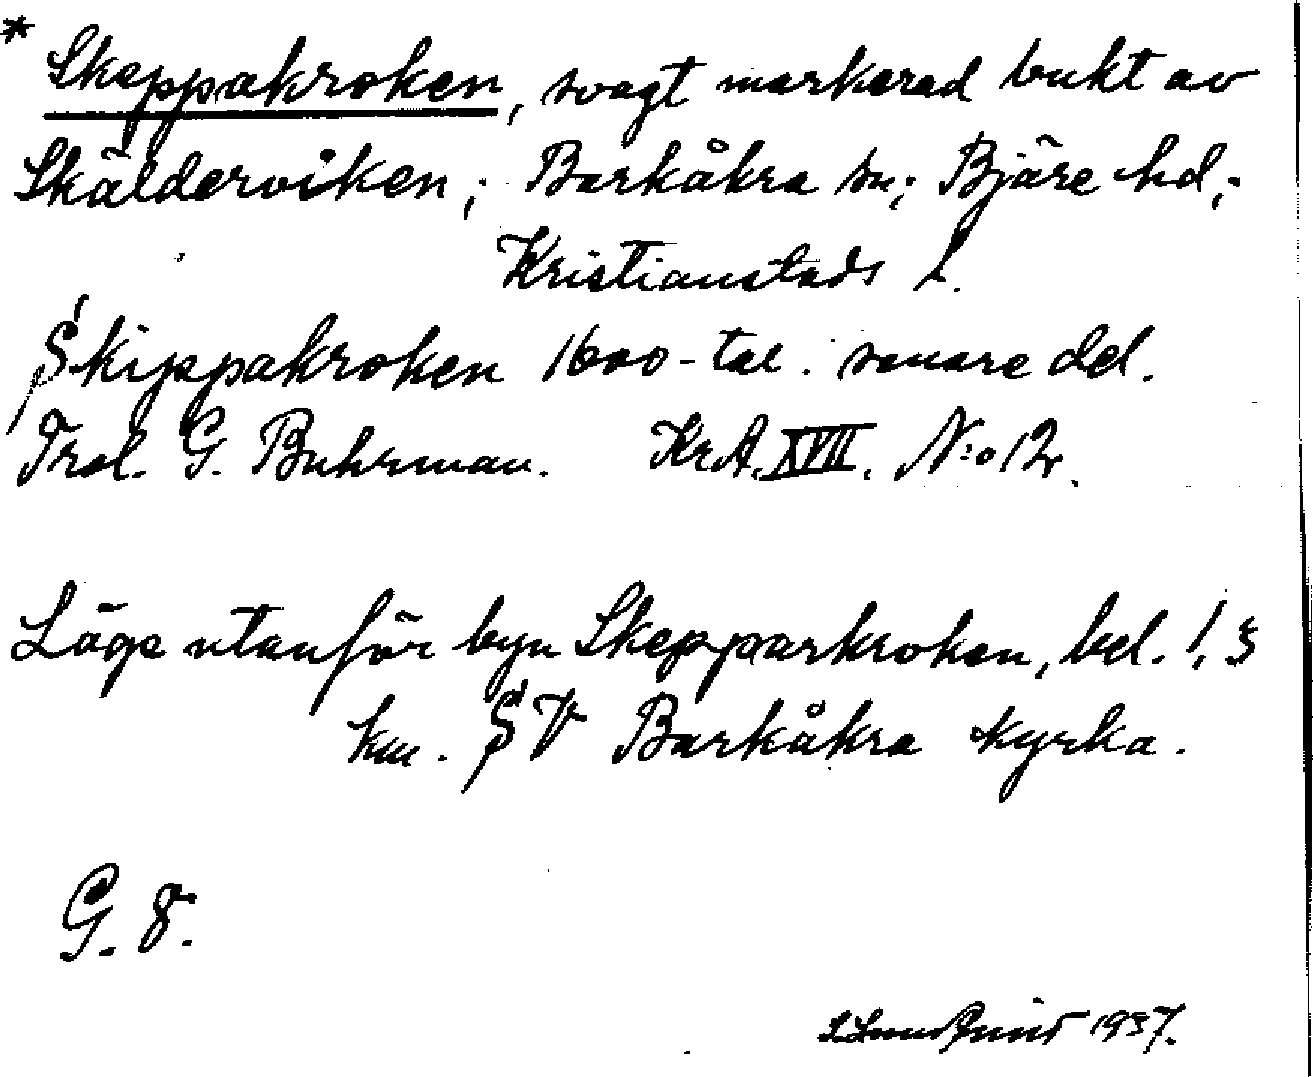 * Skeppakroken, svagt markerad bukt av
Skälderviken; Barkåkra sn; Bjäre hd;
Kristianstads l.
Skippakroken 1600-tal. senare del.
Trol. G. Buhrman. KrA. XVII. N:o 12.
Läge utanför byn Skepparkroken, bel. 1,5
km. SV Barkåkra kyrka.
G. 8.
1937.